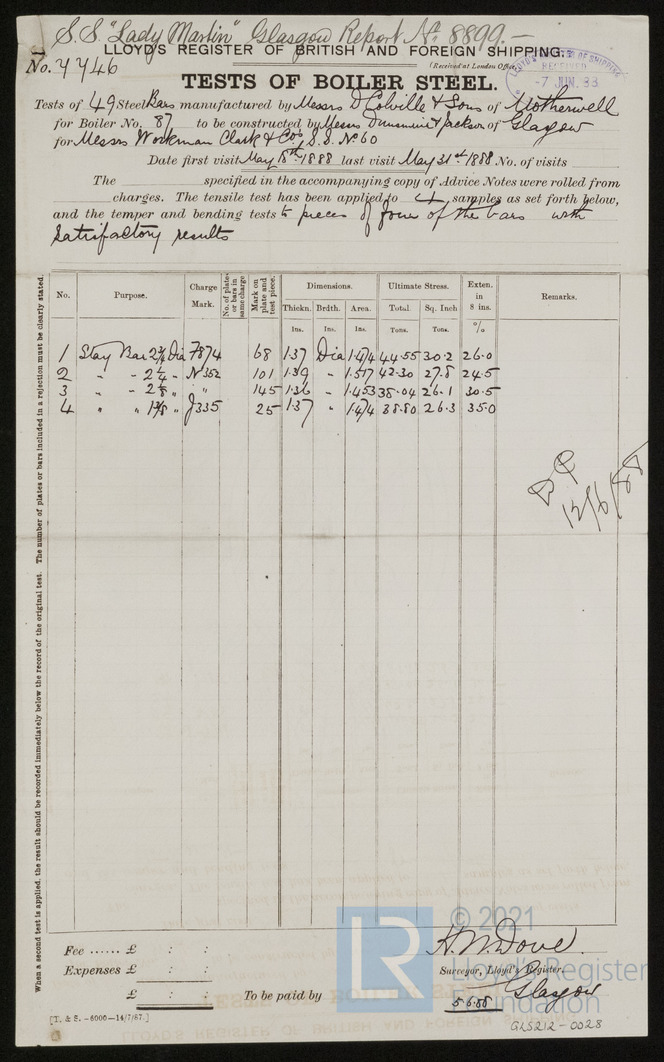 S.S. "Lady Martin" Glasgow Report No. 8899.—
LLOYD'S REGISTER OF BRITISH AND FOREIGN SHIPPING.
No. 7746
(Received at London Office,
RECEIVED
TESTS OF BOILER STEEL.
Tests of 49 Steel Bars manufactured by Messrs D Colville & Sons of Motherwell
for Boiler No. 87 to be constructed by Messrs Dunsmuir & Jackson of Glasgow
for Messrs Workman Clark & Co's, S.S. No 60
Date first visit May 18th 1888 last visit May 31st 1888 No. of visits
The specified in the accompanying copy of Advice Notes were rolled from
charges. The tensile test has been applied to 4 samples as set forth below,
and the temper and bending tests to pieces of four of the bars with
satisfactory results
When a second test is applied, the result should be recorded immediately below the record of the original test. The number of plates or bars included in a rejection must be clearly stated.
No. Purpose. Charge Mark. No. of plates or bars in same charge Mark on plate and test piece. Dimensions. Ultimate Stress. Exten. in 8 ins. Remarks.
Thickn. Brdth. Area. Total. Sq. Inch
Ins. Ins. Ins. Tons. Tons. %
1 Stay Bar 2¾ Dia 7874 68 1.37 Dia 1.474 44.55 30.2 26.0
2 " " 2¼ " N352 101 1.39 " 1.517 42.30 27.8 24.5
3 " " 2⅛ " " 145 1.36 " 1.453 38.04 26.1 30.5
4 " " 1⅜ " J335 25 1.37 " 1.474 38.80 26.3 35.0
12/6/88
Fee ...... £ : :
Expenses £ : :
£ : :
To be paid by
H. M. Dove.
Surveyor, Lloyd's Register
Glasgow
5.6.88
[T. & S. —6000—14/7/87.]
GLS212-0028
LR
© 2021
Lloyd's Register
Foundation